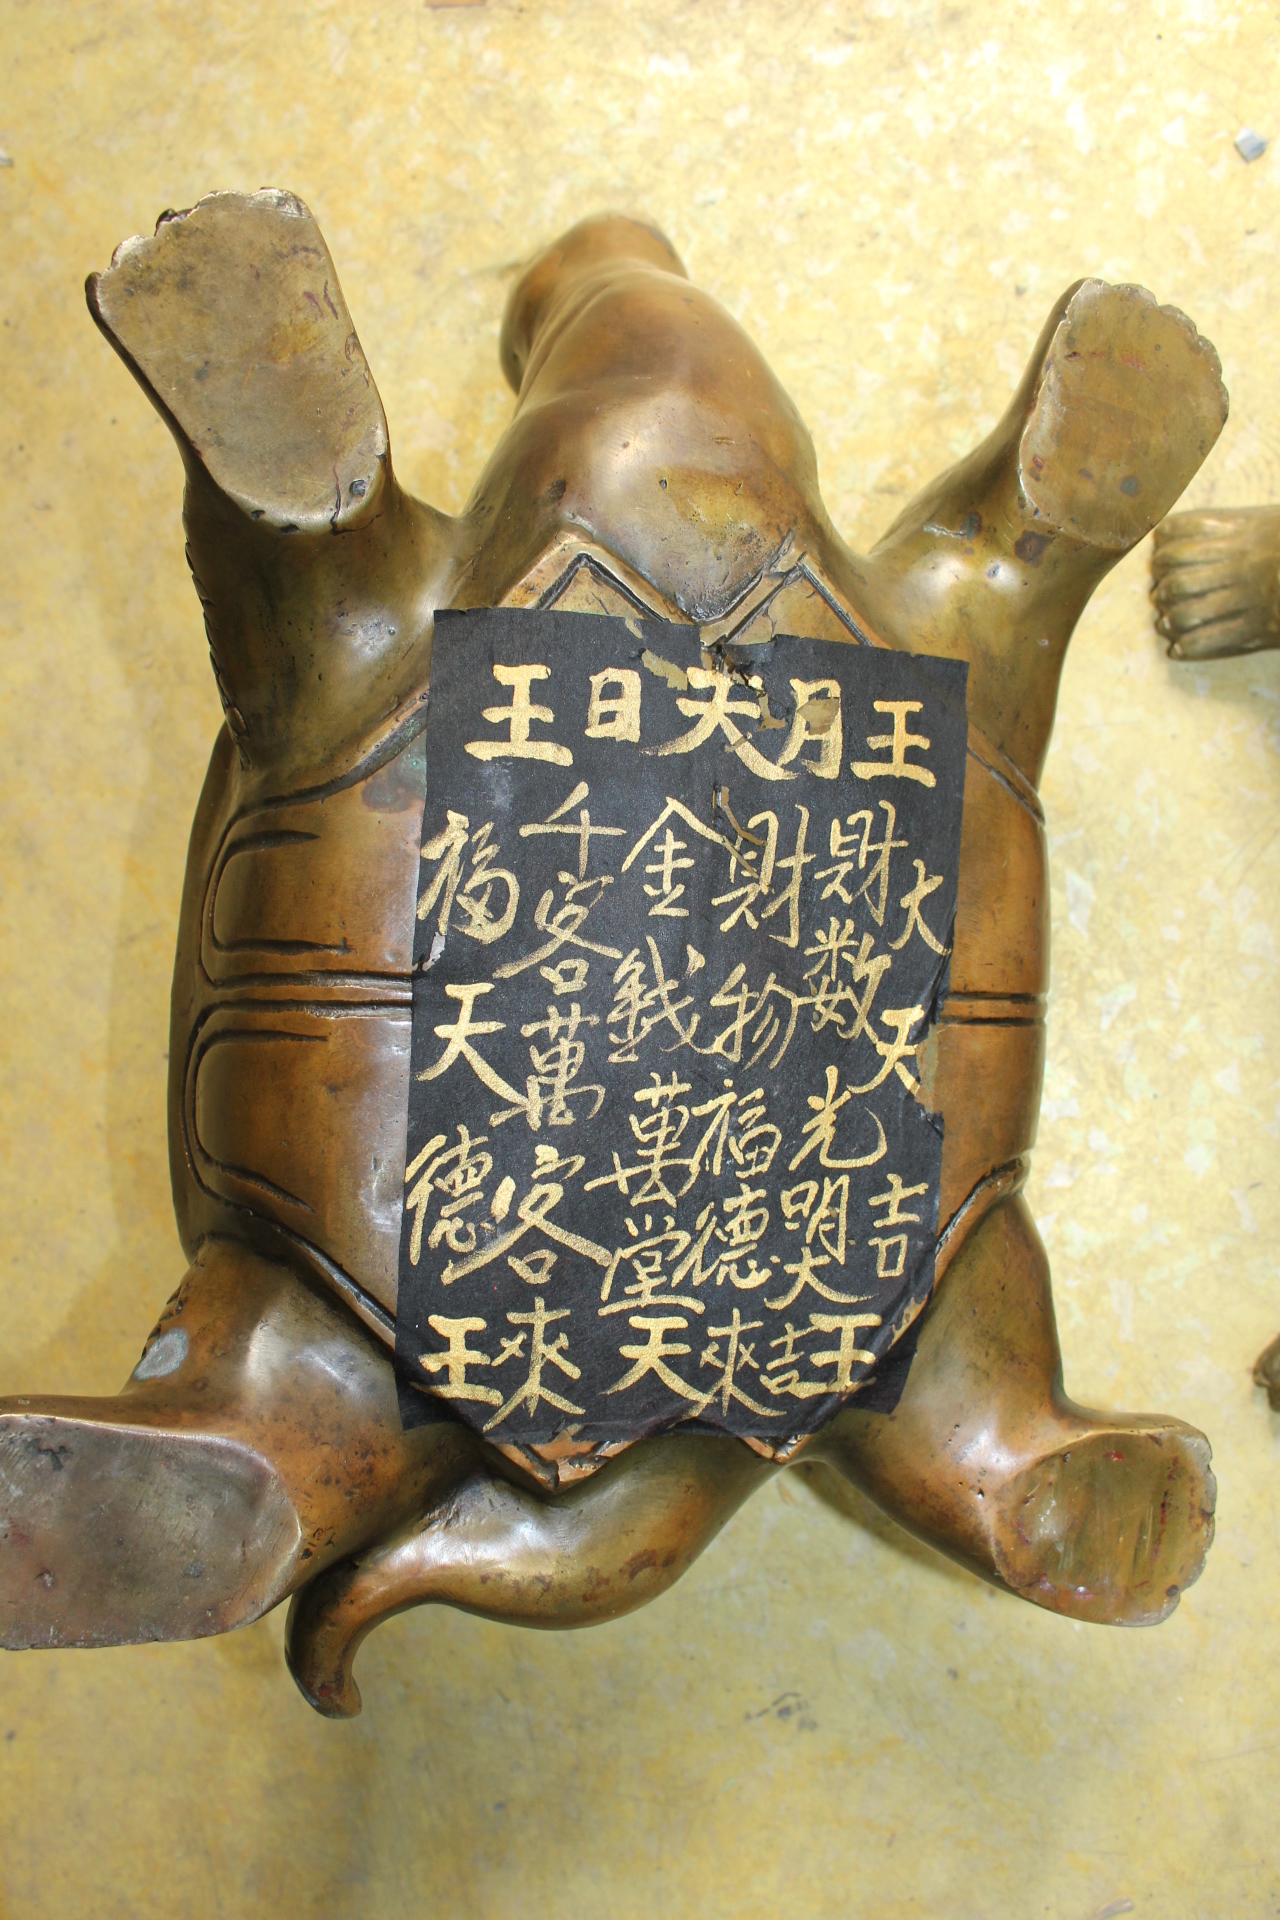 王月天日王
大天吉
財数光明大吉
財物福德來
金錢萬萬堂
千客萬客來
福天德
王天王